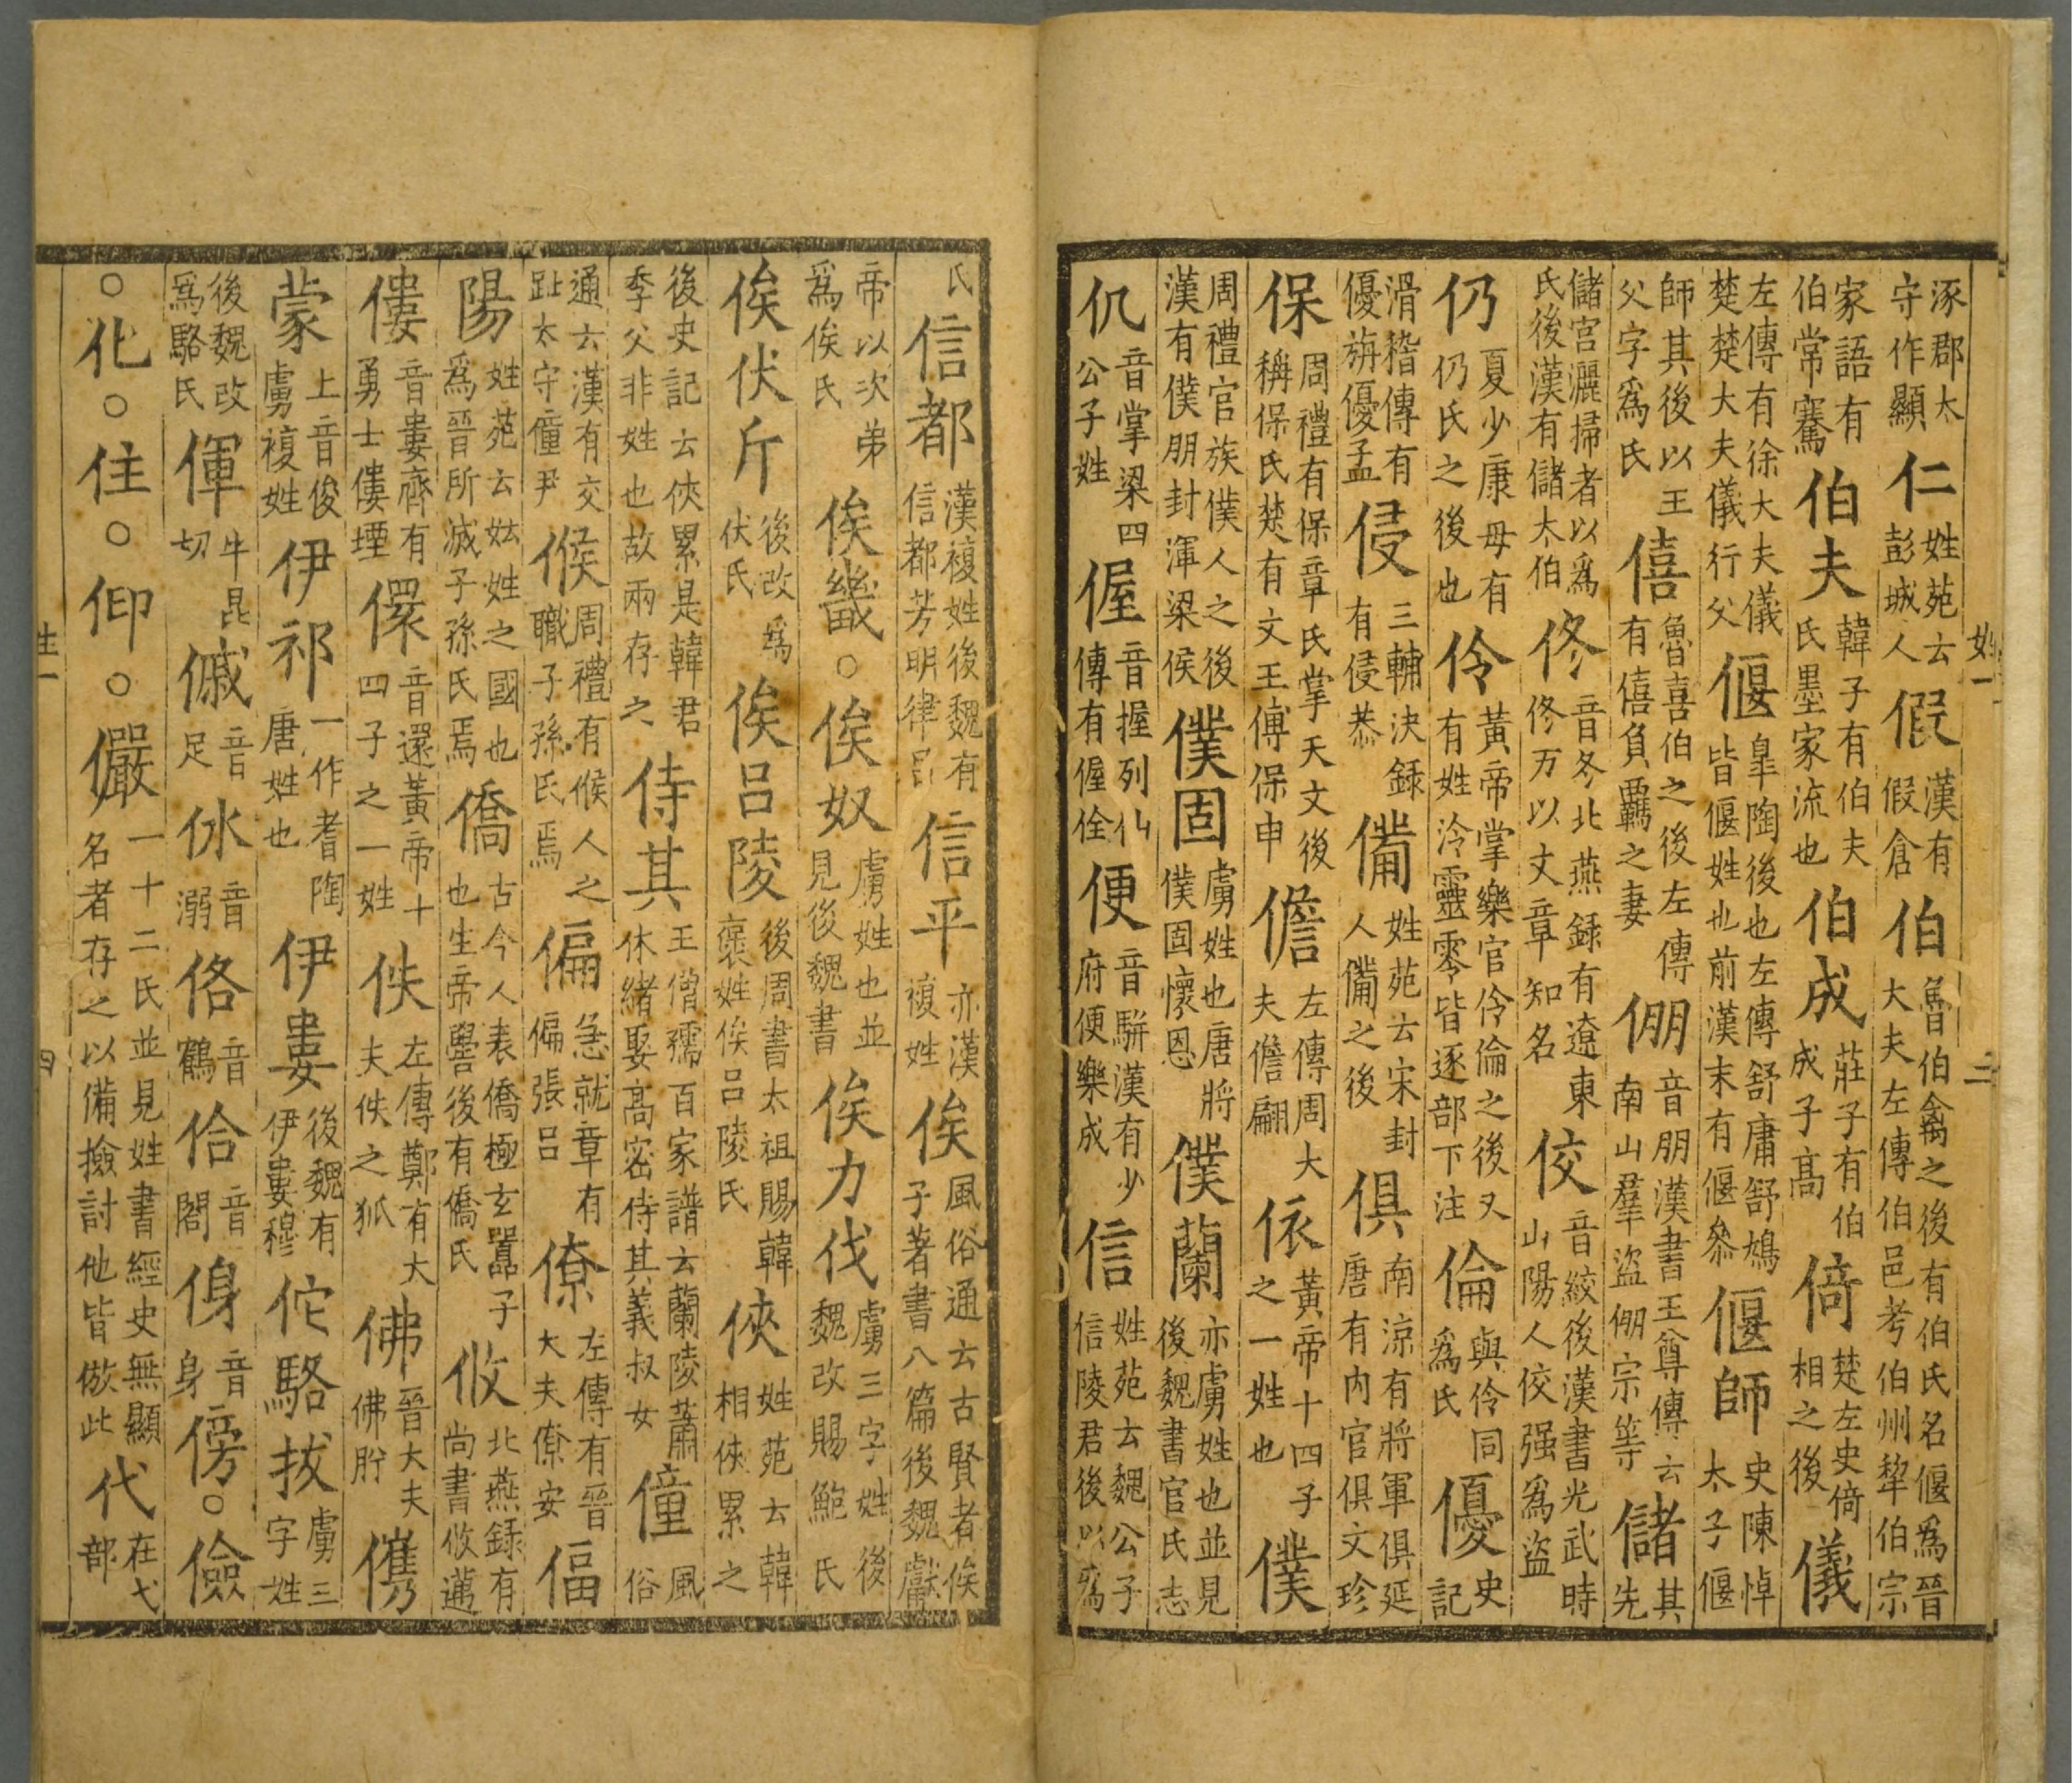 涿郡太守作顯仁姓苑云彭城人假漢有假倉伯魯伯禽之後有伯氏名偃爲晉大夫左傳伯邑考伯州犂伯宗
家語有伯常騫伯夫韓子有伯夫氏墨家流也伯成莊子有伯成子高倚楚左史倚相之後儀
左傳有徐大夫儀楚楚大夫儀行父偃皐陶後也左傳舒庸舒鳩皆偃姓也前漢末有偃叅偃師史陳悼太子偃
師其後以王父字爲氏僖魯喜伯之後左傳有僖負覊之妻倗音朋漢書王尊傳云南山羣盗倗宗等儲其先
儲宫灑掃者以爲氏後漢有儲太伯佟音冬北燕録有遼東佟万以文章知名佼音絞後漢書光武時山陽人佼强爲盗
仍夏少康母有仍氏之後也伶黃帝掌樂官伶倫之後又有姓泠靈零皆逐部下注倫與伶同爲氏優史記
滑稽傳有優旃優孟侵三輔決録有侵恭備姓苑云宋封人備之後俱南涼有將軍俱延唐有内官俱文珍
保周禮有保章氏掌天文後稱保氏楚有文王傅保申儋左傳周大夫儋翩依黃帝十四子之一姓也僕
周禮官族僕人之後漢有僕朋封渾梁侯僕固虜姓也唐將僕固懷恩僕蘭亦虜姓也並見後魏書官氏志
仉音掌梁四公子姓偓音握列仙傳有偓佺便音騈漢有少府便樂成信姓苑云魏公子信陵君後以爲
姓一
二
氏信都漢複姓後魏有信都芳明律呂信平亦漢複姓俟風俗通云古賢者俟子著書八篇後魏獻
帝以次弟爲俟氏俟畿○俟奴虜姓也並見後魏書俟力伐虜三字姓後魏改賜鮑氏
俟伏斤後改爲伏氏俟呂陵後周書太祖賜韓褒姓俟呂陵氏俠姓苑云韓相俠累之
後史記云俠累是韓君季父非姓也故兩存之侍其王僧孺百家譜云蘭陵蕭休緒娶高密侍其義叔女僮風俗
通云漢有交趾太守僮尹候周禮有候人之職子孫氏焉偏急就章有偏張呂僚左傳有晉大夫僚安偪
陽姓苑云妘姓之國也爲晉所滅子孫氏焉僑古今人表僑極玄囂子也生帝嚳後有僑氏攸北燕録有尚書攸邁
僂音婁齊有勇士僂堙儇音還黃帝十四子之一姓佚左傳鄭有大夫佚之狐佛晉大夫佛肸儁
蒙上音俊虜複姓伊祁一作耆陶唐姓也伊婁後魏有伊婁穆佗駱拔虜三字姓
後魏改爲駱氏㑮牛昆切傶音足㲻音溺佫音鶴佮音閤㑗音身傍○儉
○化○住○仰○儼一十二氏並見姓書經史無顯名者存之以備撿討他皆倣此代在弋部
四